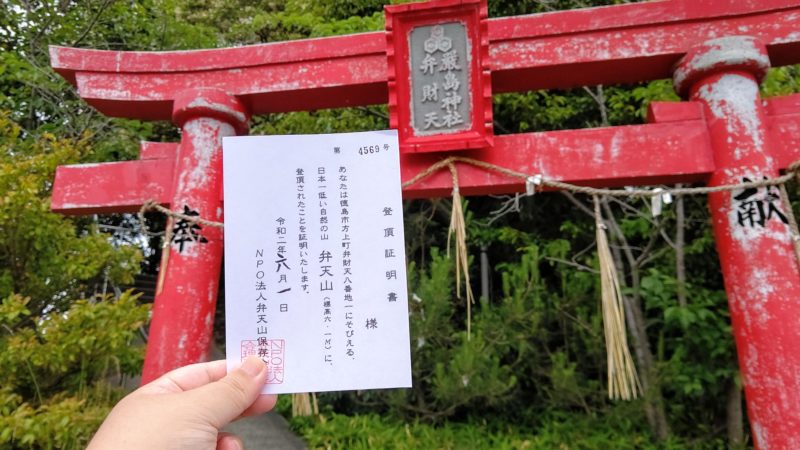 厳島神社
弁財天
奉
献
第 4569 号
登頂証明書
様
あなたは徳島市方上町弁財天八番地一にそびえる、
日本一低い自然の山 弁天山（標高六・一M）に、
登頂されたことを証明いたします。
令和二年六月一日
NPO法人弁天山保存